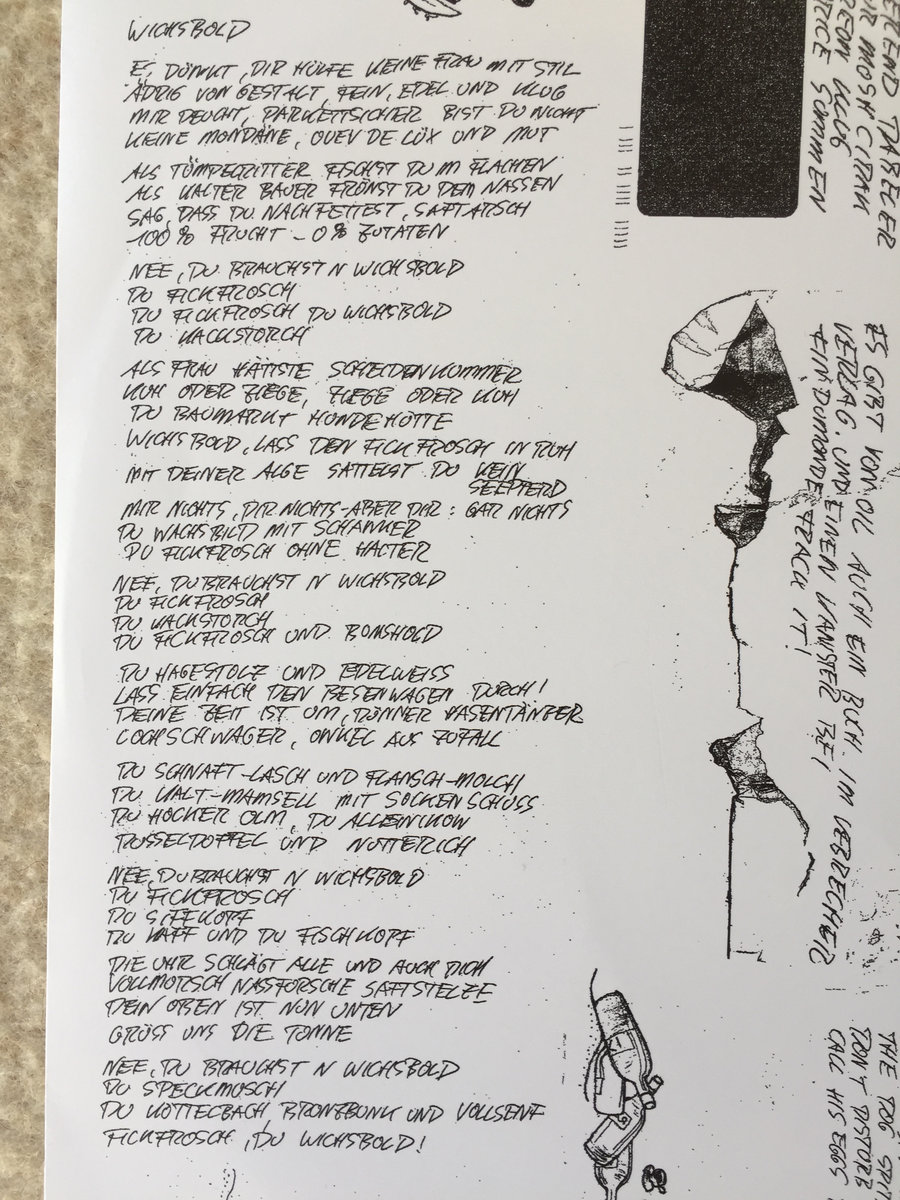 WICHSBOLD
ES DÜNKT, DIR HÜLFE KEINE FRAU MIT STIL
ADRIG VON GESTALT, FEIN, EDEL UND KLUG
MIR DEUCHT, PARKETTSICHER BIST DU NICHT
KEINE MONDÄNE, QUEV DE LÜX UND MUT
ALS TÜMPELRITTER FISCHST DU IM FLACHEN
ALS KALTER BAUER FRÖNST DU DEM NASSEN
SAG, DASS DU NACHFETTEST, SAFTARSCH
100% FRUCHT - 0% ZUTATEN
NEE, DU BRAUCHST N WICHSBOLD
DU FICKFROSCH
DU FICKFROSCH DU WICHSBOLD
DU KACKSTORCH
ALS FRAU HÄTTSTE SCHEIDENKUMMER
KUH ODER ZIEGE, ZIEGE ODER KUH
DU BAUMARKT HUNDEHÜTTE
WICHSBOLD, LASS DEN FICKFROSCH IN RUH
MIT DEINER ALGE SATTELST DU KEIN
SEEPFERD
MIR NICHTS, DIR NICHTS - ABER DIR: GAR NICHTS
DU WACHSBILD MIT SCHANKER
DU FICKFROSCH OHNE HALTER
NEE, DU BRAUCHST N WICHSBOLD
DU FICKFROSCH
DU KACKSTORCH
DU FICKFROSCH UND BUMSHOLD
DU HAGESTOLZ UND EDELWEISS
LASS EINFACH DEN BESENWAGEN DURCH!
DEINE ZEIT IST UM, DÜNNER HASENTÄNZER
LOCHSCHWAGER, ONKEL AUS ZUFALL
DU SCHNAFT-LASCH UND FLANSCH-MOLCH
DU KALT-MAMSELL MIT SOCKENSCHUSS
DU HOCKER OLM, DU ALLEINIKOW
DUSSELDOFFEL UND NUTTERICH
NEE, DU BRAUCHST N WICHSBOLD
DU FICKFROSCH
DU SIFFKOPF
DU KAFF UND DU FISCHKOPF
DIE UHR SCHLÄGT ALLE UND AUCH DICH
VOLLMORSCH NASSFORSCHE SAFTSTELZE
DEIN OBEN IST NUN UNTEN
GRÜSS UNS DIE TONNE
NEE, DU BRAUCHST N WICHSBOLD
DU SPECKMUSCH
DU KÖTTELBACH, BRONZBUNK UND VOLLSENF
FICKFROSCH, DU WICHSBOLD!
ES GIBT VON OIL AUCH EIN BUCH IM VERBRECHER
VERLAG. UND EINEN KANISTER BEI
FRACK IT!
THE DOG
DON'T DISTURB
CALL HIS EGGS